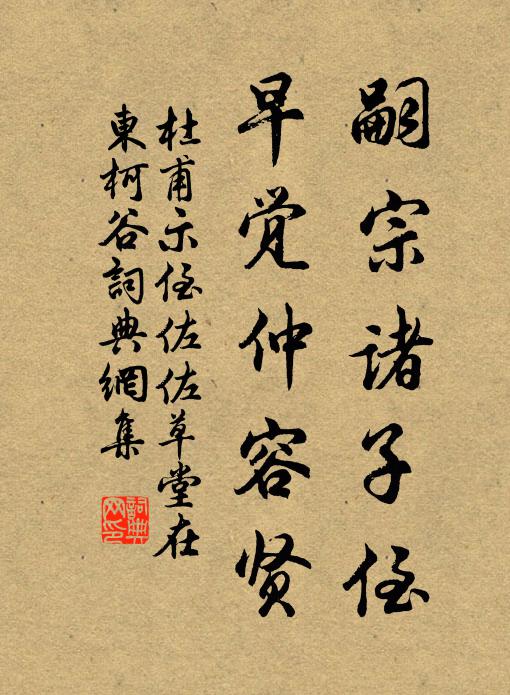 嗣宗諸子侄
早觉仲容贤
杜甫示侄佐佐草堂在
東柯谷詞典網集
詞典
网印